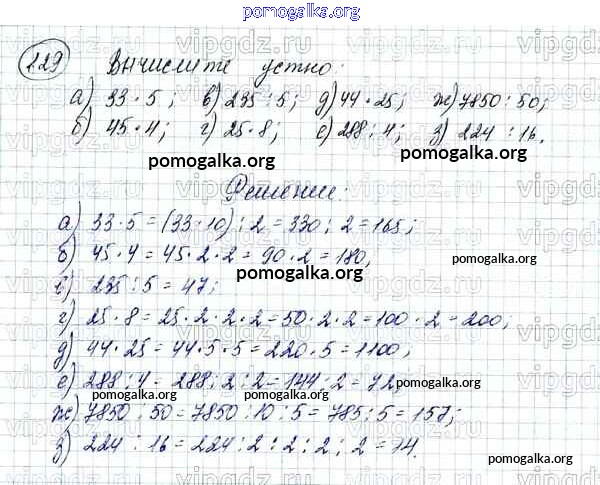 pomogalka.org
229 Вычислите устно:
а) 33·5; в) 235:5; д) 44·25; ж) 7850:50;
б) 45·4; г) 25·8; е) 288:4; з) 224:16.
pomogalka.org
pomogalka.org
Решение:
а) 33·5=(33·10):2=330:2=165;
б) 45·4=45·2·2=90·2=180;
pomogalka.org
pomogalka.org
в) 235:5=47;
г) 25·8=25·2·2·2=50·2·2=100·2=200;
д) 44·25=44·5·5=220·5=1100;
е) 288:4=288:2:2=144:2=72;
pomogalka.org
pomogalka.org
ж) 7850:50=7850:10:5=785:5=157;
з) 224:16=224:2:2:2:2=14.
pomogalka.org